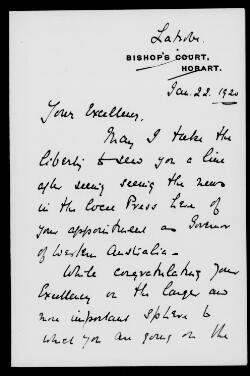 Latrobe.
BISHOP'S COURT,
HOBART.
Jan. 22. 1920
Your Excellency,
May I take the
liberty to send you a line
after seeing seeing the news
in the local Press here of
your appointment as Governor
of Western Australia -
While congratulating Your
Excellency on the larger and
more important sphere to
which you are going on the